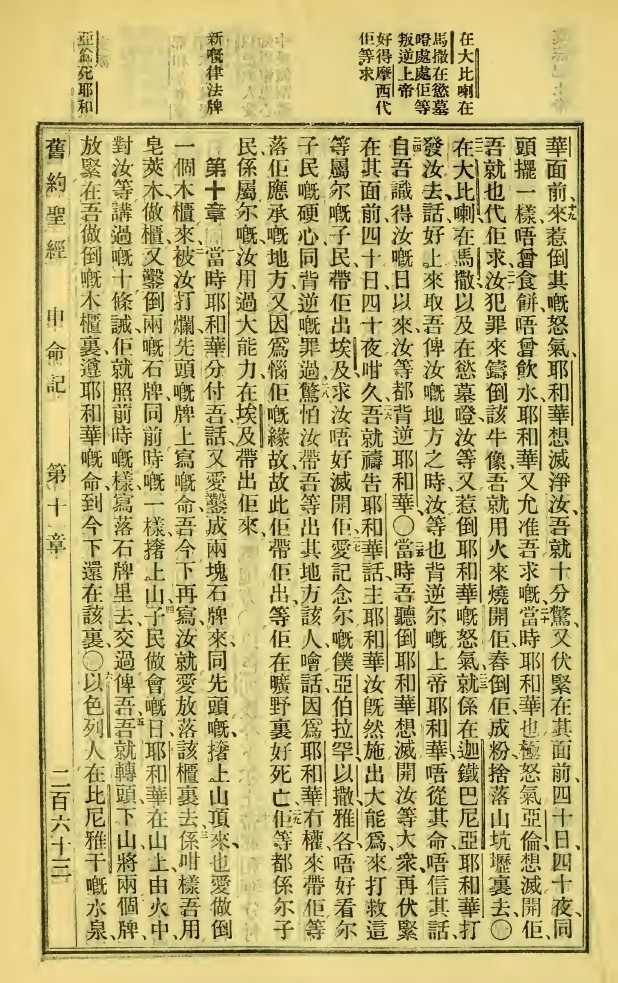 在大比喇在
馬撒在慾墓
噔處處佢等
叛逆上帝
好得摩西代
佢等求
新嘅律法牌
亞倫死耶和
華面前來惹倒其嘅怒氣、耶和華想滅淨汝、吾就十分驚、又伏緊在其面前四十日、四十夜、同
頭擺一樣、唔曾食餅、唔曾飲水、耶和華又允准吾求嘅、當時耶和華也極怒氣亞倫、想滅開佢、
吾就也代佢求、汝犯罪來鑄倒該牛像、吾就用火來燒開佢、舂倒佢成粉、捨落山坑壢裏去、〇
在大比喇、在馬撒、以及在慾墓噔、汝等又惹倒耶和華嘅怒氣、就係在迦鐵巴尼亞、耶和華打
發汝去、話好上來取吾俾汝嘅地方之時、汝等也背逆尔嘅上帝耶和華、唔從其命、唔信其話、
自吾識得汝嘅日以來、汝等都背逆耶和華、〇當時吾聽倒耶和華想滅開汝等大衆、再伏緊
在其面前四十日四十夜咁久、吾就禱告耶和華、話、主耶和華、汝既然施出大能爲來打救這
等屬尔嘅子民、帶佢出埃及、求汝唔好滅開佢、愛記念尔嘅僕亞伯拉罕、以撒、雅各、唔好看尔
子民嘅硬心、同背逆嘅罪過、驚怕汝帶吾等出其地方該人噲話、因爲耶和華冇權來帶佢等
落佢應承嘅地方、又因爲惱佢嘅緣故、故此佢帶佢出、等佢在曠野裏好死亡、佢等都係尔子
民、係屬尔嘅、汝用過大能力、在埃及帶出佢來、
第十章 當時耶和華分付吾話、又愛鑿成兩塊石牌來、同先頭嘅、撦上山頂來、也愛做倒
一個木櫃來、被汝打爛先頭嘅牌上寫嘅命、吾今下再寫、汝就愛放落該櫃裏去、係咁樣、吾用
皂莢木做櫃、又鑿倒兩嘅石牌、同前時嘅一樣、撦上山、子民做會嘅日、耶和華在山上由火中
對汝等講過嘅十條誡、佢就照前時嘅樣、寫落石牌里去、交過俾吾、吾就轉頭下山、將兩個牌、
放緊在吾做倒嘅木櫃裏、遵耶和華嘅命、到今下還在該裏、〇以色列人在比尼雅干嘅水泉、
舊約聖經 申命記 第十章 二百六十三